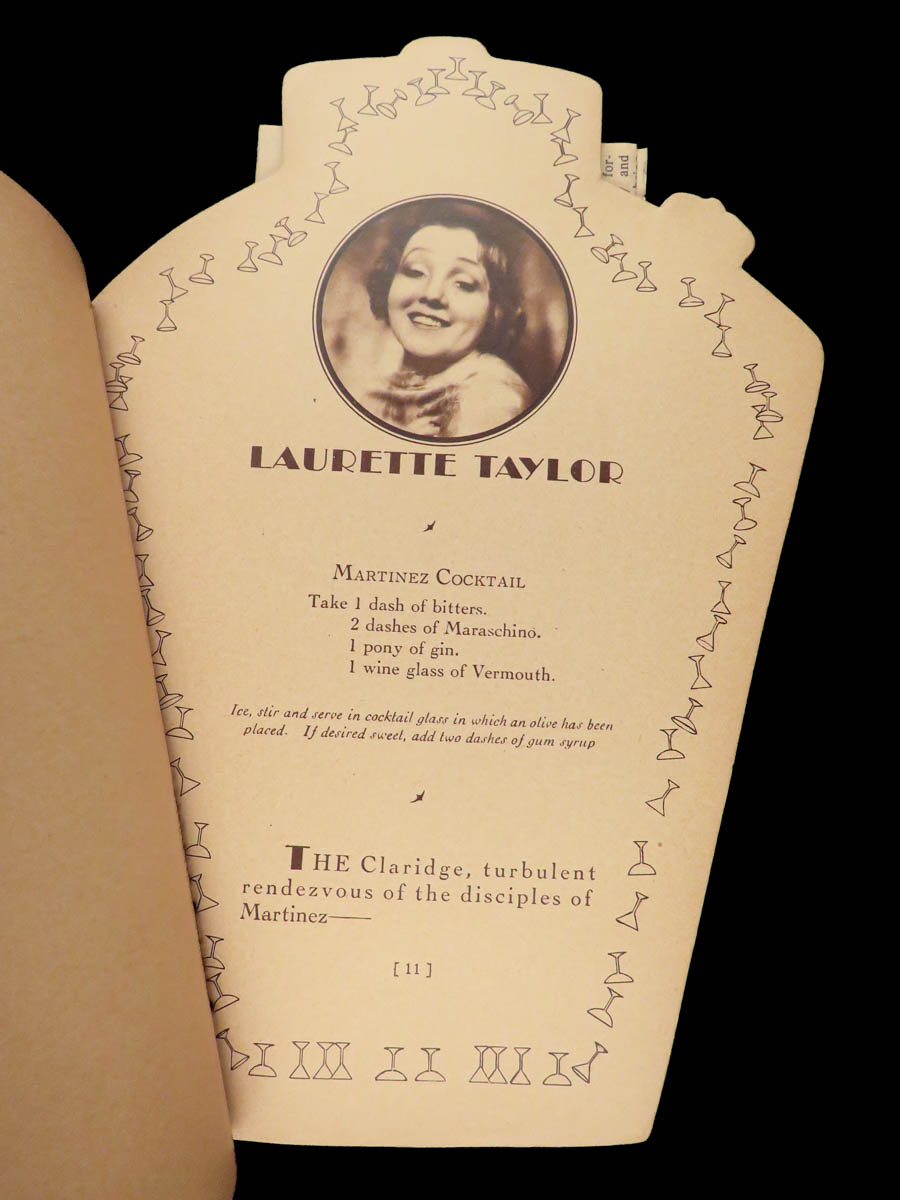 for-
and
LAURETTE TAYLOR
MARTINEZ COCKTAIL
Take 1 dash of bitters.
2 dashes of Maraschino.
1 pony of gin.
1 wine glass of Vermouth.
Ice, stir and serve in cocktail glass in which an olive has been
placed. If desired sweet, add two dashes of gum syrup
THE Claridge, turbulent
rendezvous of the disciples of
Martinez——
[ 11 ]